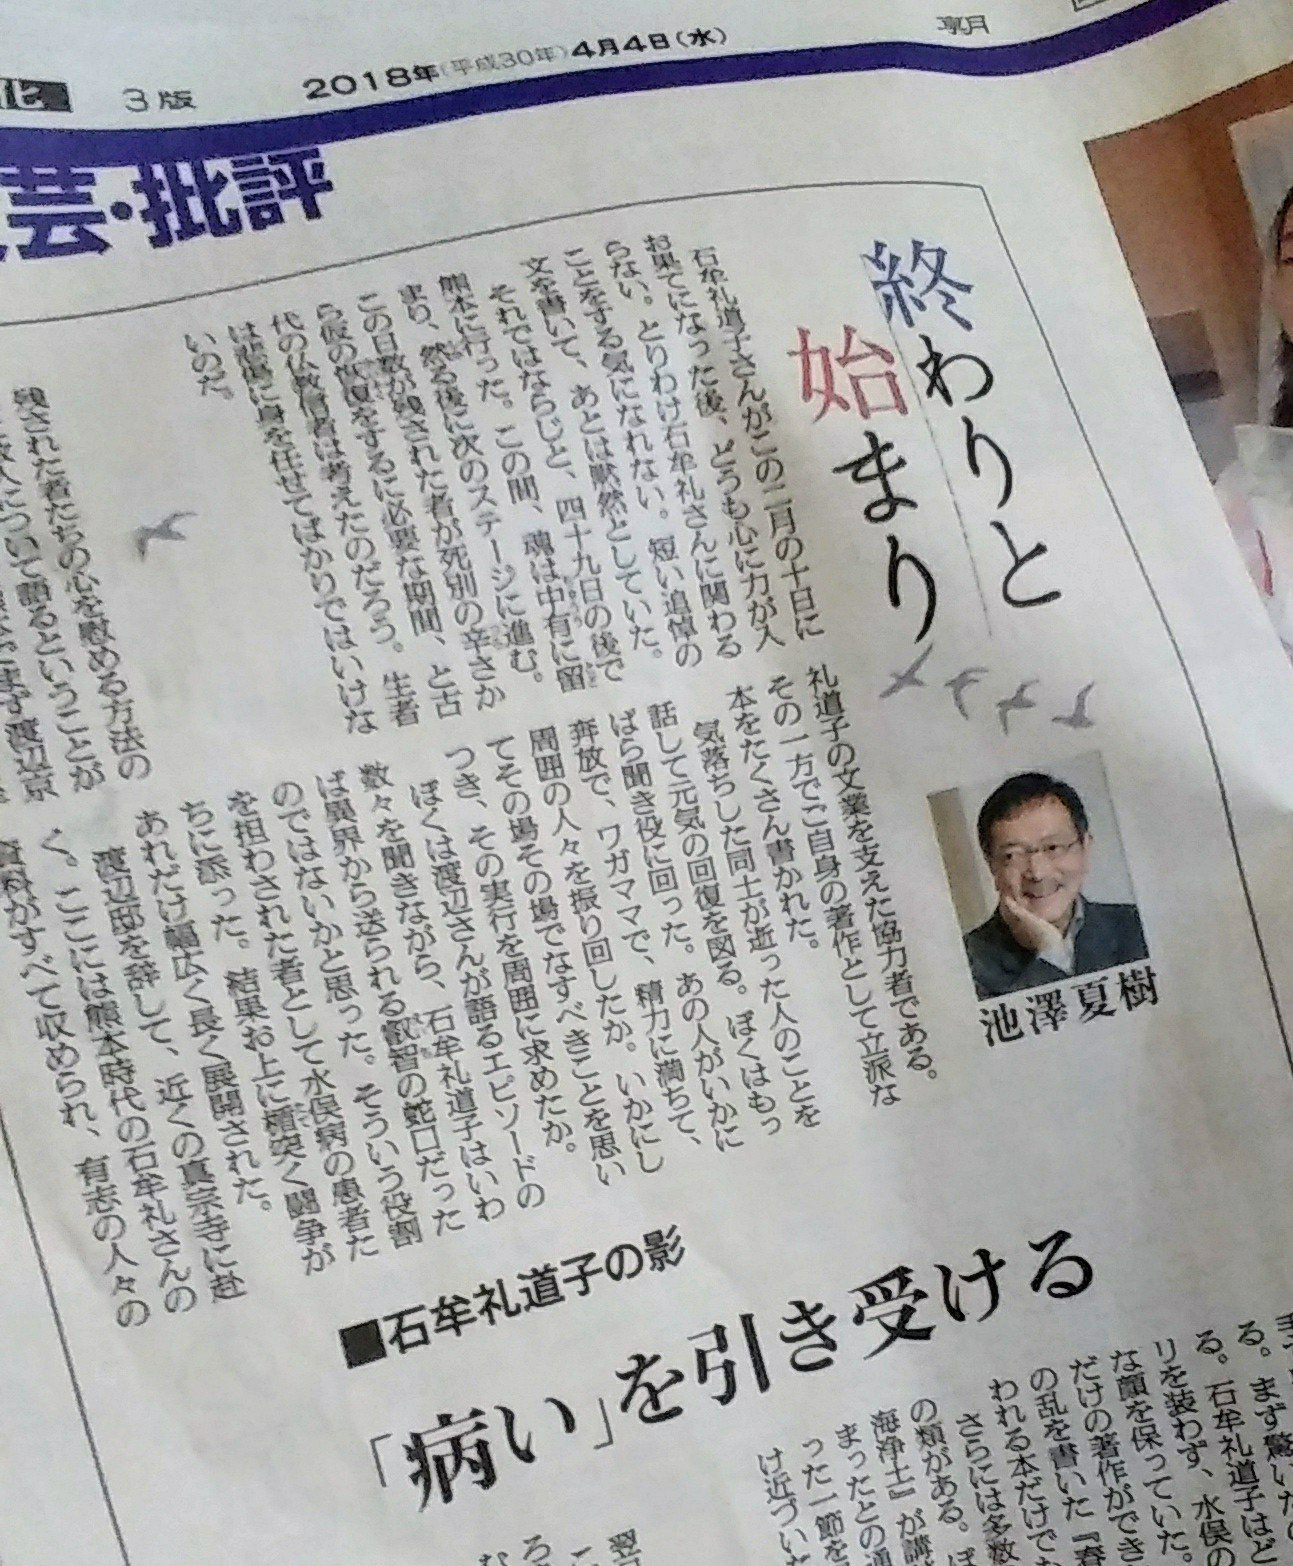 3版
2018年(平成30年)4月4日(水)
朝
芸・批評
終わりと
始まり
池澤夏樹
石牟礼道子さんがこの二月の十日に
お果てになった後、どうも心に力が入
らない。とりわけ石牟礼さんに関わる
ことをする気になれない。短い追悼の
文を書いて、あとは黙然としていた。
それではならじと、四十九日の後で
熊本に行った。この間、魂は中有に留
まり、然る後に次のステージに進む。
この日数が残された者が死別の辛さか
ら仮の恢復をするに必要な期間、と古
代の仏教信者は考えたのだろう。生者
は悲傷に身を任せてばかりではいけな
いのだ。
残された者たちの心を慰める方法の
礼道子の文業を支えた協力者である。
その一方でご自身の著作として立派な
本をたくさん書かれた。
気落ちした同士が逝った人のことを
話して元気の回復を図る。ぼくはもっ
ぱら聞き役に回った。あの人がいかに
奔放で、ワガママで、精力に満ちて、
周囲の人々を振り回したか。いかにし
てその場その場でなすべきことを思い
つき、その実行を周囲に求めたか。
ぼくは渡辺さんが語るエピソードの
数々を聞きながら、石牟礼道子はいわ
ば異界から送られる叡智の蛇口だった
のではないかと思った。そういう役割
を担わされた者として水俣病の患者た
ちに添った。結果お上に楯突く闘争が
あれだけ幅広く長く展開された。
渡辺邸を辞して、近くの真宗寺に赴
く。ここには熊本時代の石牟礼さんの
資料がすべて収められ、有志の人々の
■石牟礼道子の影
「病い」を引き受ける
る。まず驚いた
る。石牟礼道子はど
リを装わず、水俣の
な顔を保っていた
だけの著作ができ
の乱を書いた『春
われる本だけで
さらには多数
の類がある。ぼ
海浄土』が講
まったとの
った一節を
け近づいた